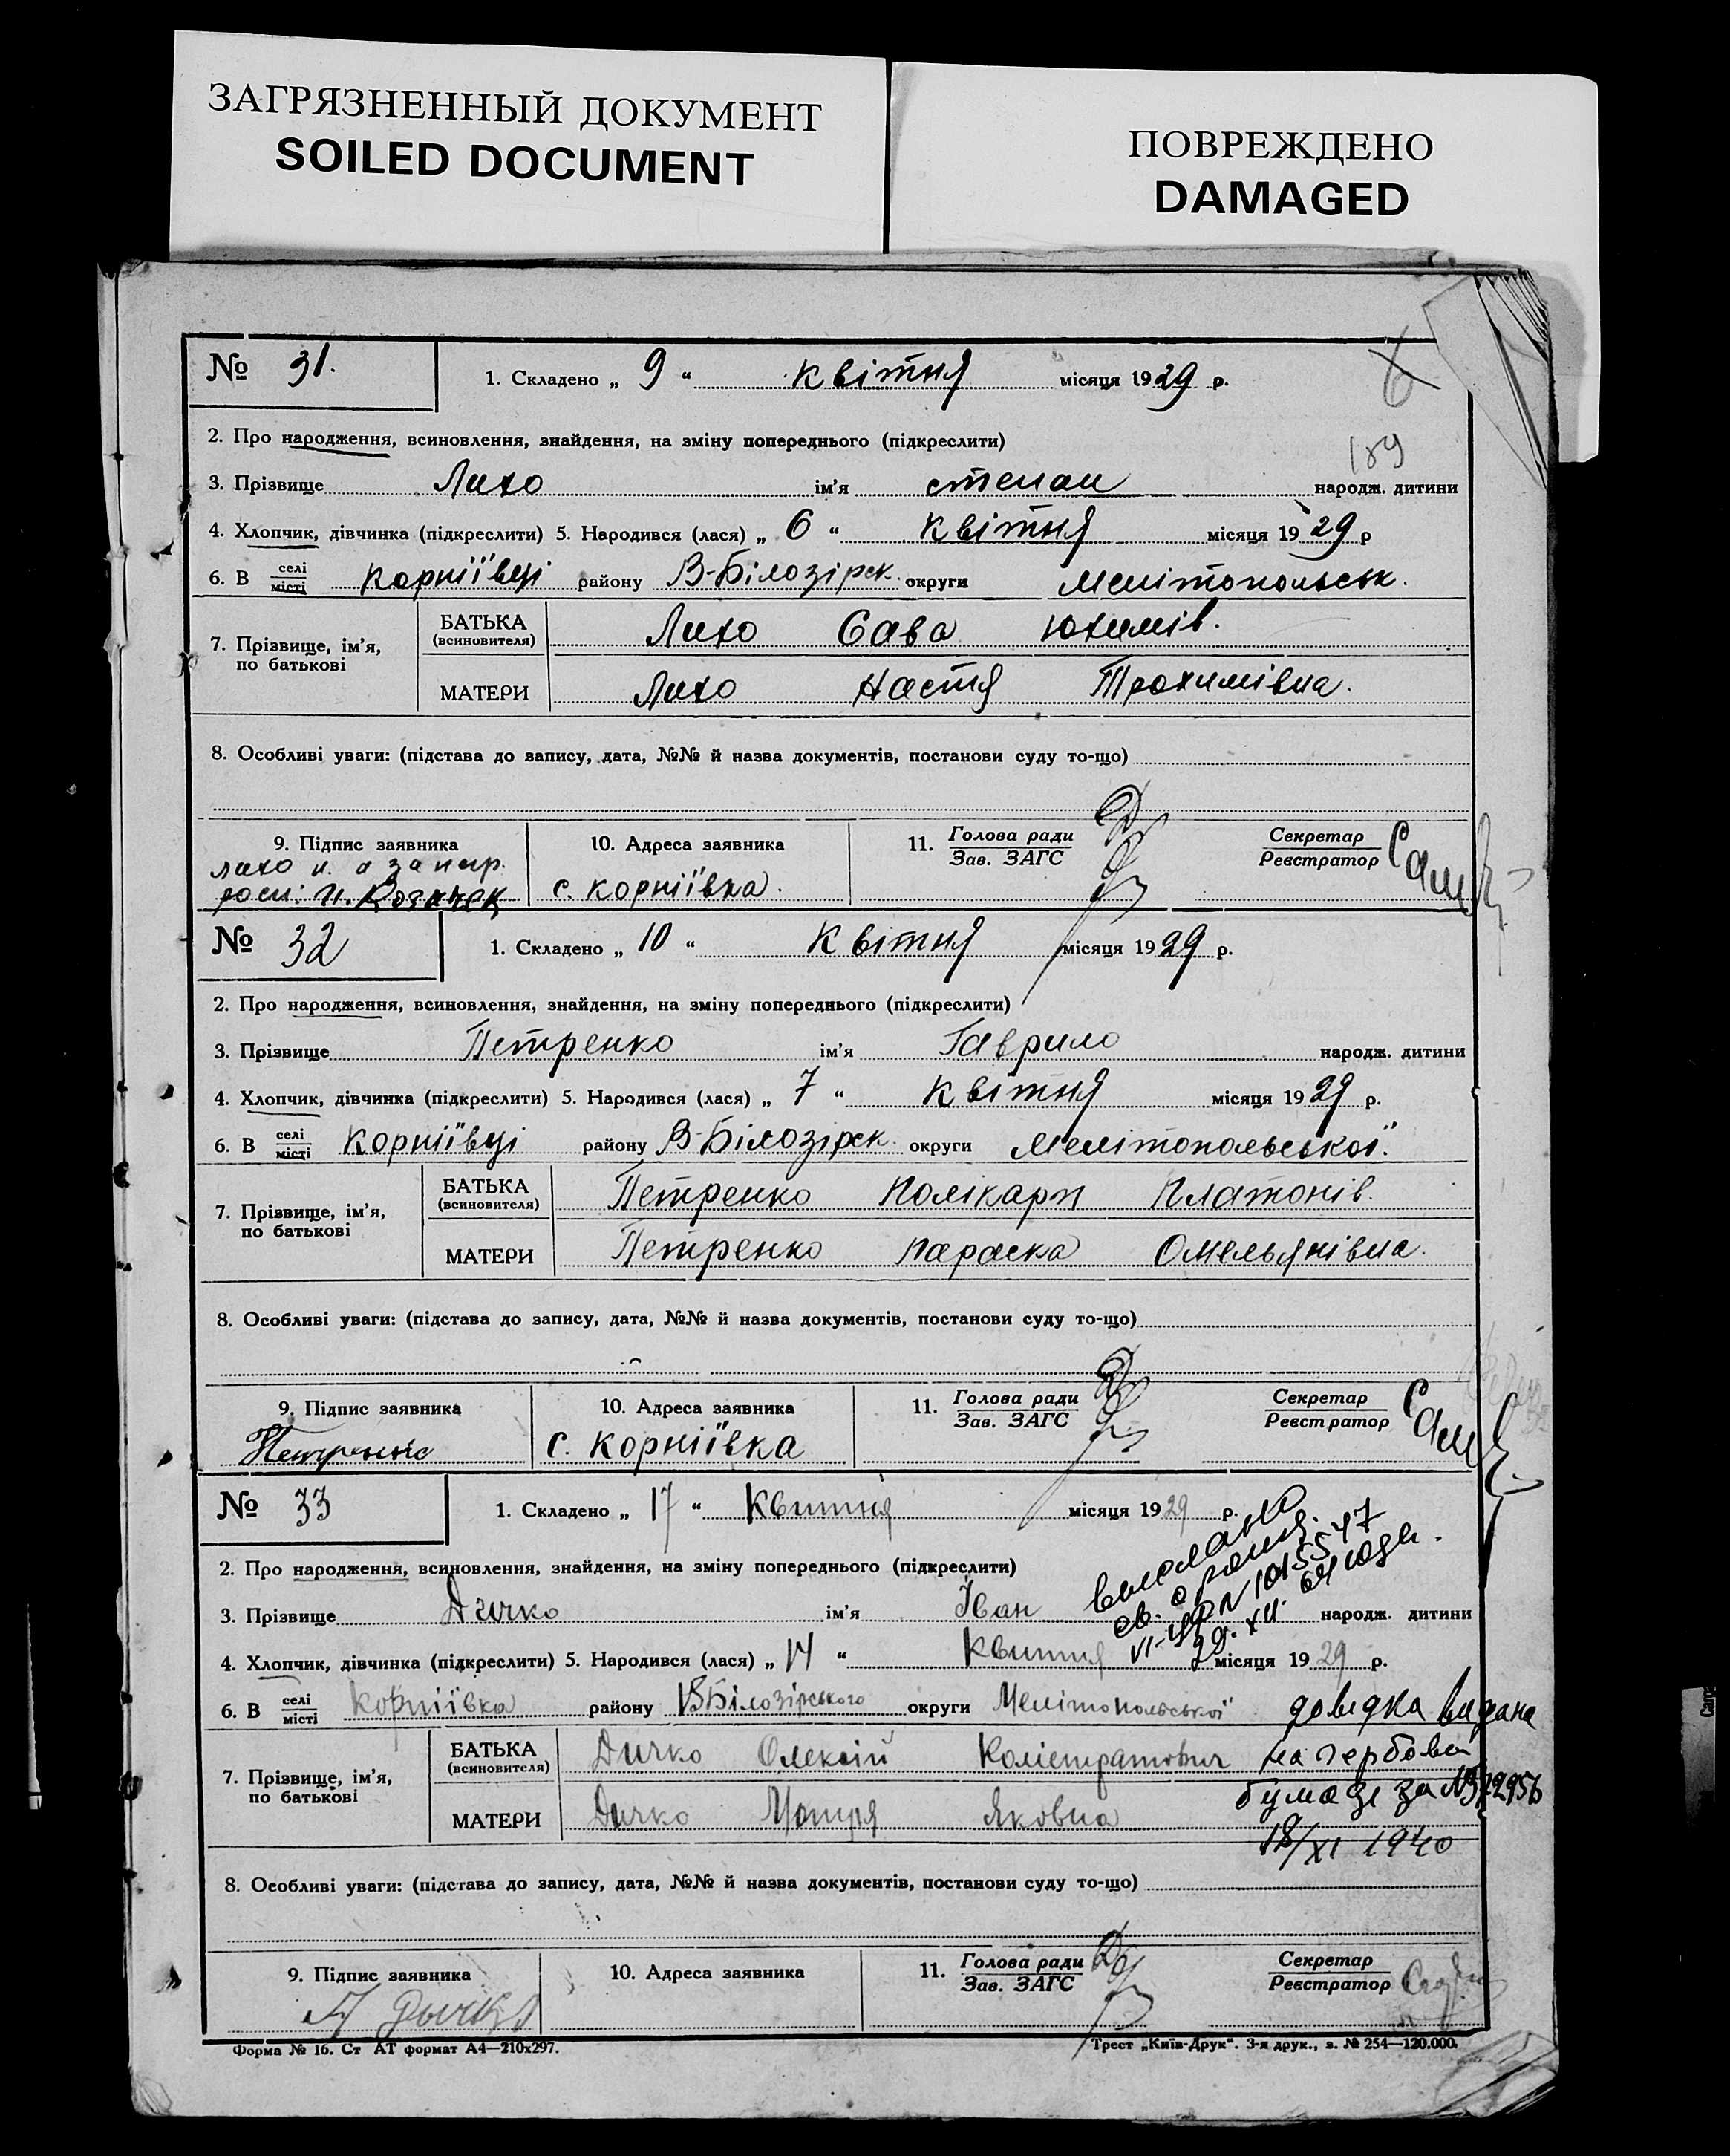 ЗАГРЯЗНЕННЫЙ ДОКУМЕНТ
SOILED DOCUMENT
ПОВРЕЖДЕНО
DAMAGED
№ 31. 1. Складено „ 9 “ квітня місяця 1929 р.
2. Про народження, всиновлення, знайдення, на зміну попереднього (підкреслити)
189
3. Прізвище Лихо ім’я степан народж. дитини
4. Хлопчик, дівчинка (підкреслити) 5. Народився (лася) „ 6 “ квітня місяця 1929 р
6. В селі місті корніївці району В-Білозірськ. округи мелітопольськ.
7. Прізвище, ім’я, по батькові
БАТЬКА (всиновителя) Лихо Сава Юхимів.
МАТЕРИ Лихо Настя Трохимівна.
8. Особливі уваги: (підстава до запису, дата, №№ й назва документів, постанови суду то-що)
9. Підпис заявника 10. Адреса заявника 11. Голова ради Зав. ЗАГС Секретар Реєстратор
лихо н. а за
с. корніївка.
№ 32 1. Складено „ 10 “ квітня місяця 1929 р.
2. Про народження, всиновлення, знайдення, на зміну попереднього (підкреслити)
3. Прізвище Петренко ім’я Гаврило народж. дитини
4. Хлопчик, дівчинка (підкреслити) 5. Народився (лася) „ 7 “ квітня місяця 1929 р.
6. В селі місті корніївці району В-Білозірськ. округи мелітопольської.
7. Прізвище, ім’я, по батькові
БАТЬКА (всиновителя) Петренко Полікарп Платонів.
МАТЕРИ Петренко параска Омельянівна.
8. Особливі уваги: (підстава до запису, дата, №№ й назва документів, постанови суду то-що)
9. Підпис заявника 10. Адреса заявника 11. Голова ради Зав. ЗАГС Секретар Реєстратор
Петренко с. корніївка
№ 33 1. Складено „ 17 “ Квитня місяця 1929 р.
2. Про народження, всиновлення, знайдення, на зміну попереднього (підкреслити)
3. Прізвище Дичко ім’я Іван народж. дитини
выслано
св. о рожд.
VI- № 1015547
29. XII. 64 года.
4. Хлопчик, дівчинка (підкреслити) 5. Народився (лася) „ 14 “ Квитня місяця 1929 р.
6. В селі місті корніївка району ВБілозірського округи Мелітопольської
довидка видана
на гербовой
бумазе за №
18/XI 1940
7. Прізвище, ім’я, по батькові
БАТЬКА (всиновителя) Дичко Олексій Калістратович
МАТЕРИ Дичко Мотря Яковна
8. Особливі уваги: (підстава до запису, дата, №№ й назва документів, постанови суду то-що)
9. Підпис заявника 10. Адреса заявника 11. Голова ради Зав. ЗАГС Секретар Реєстратор
Дычко
Форма № 16. Ст АТ формат А4—210х297. Трест „Київ-Друк“. 3-я друк., з. № 254—120.000.